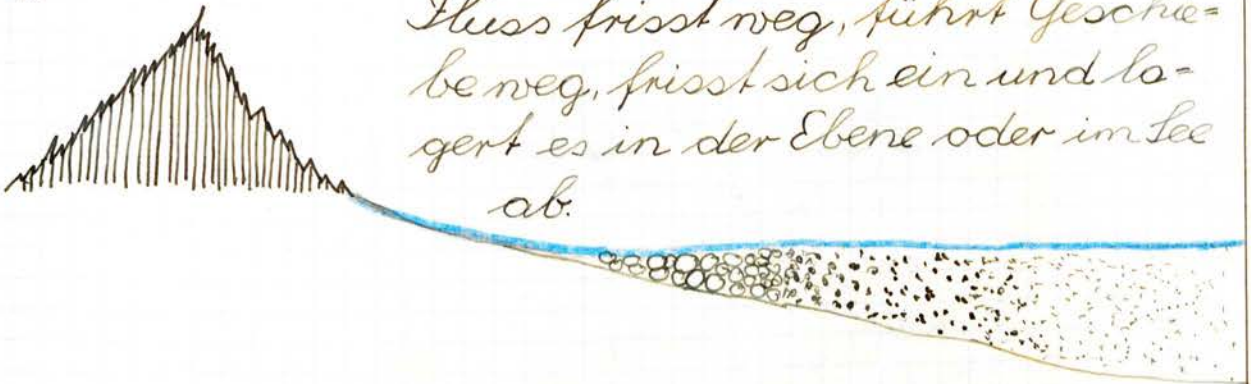 Fluss frisst weg, führt Geschie=
be weg, frisst sich ein und la=
gert es in der Ebene oder im See
ab.